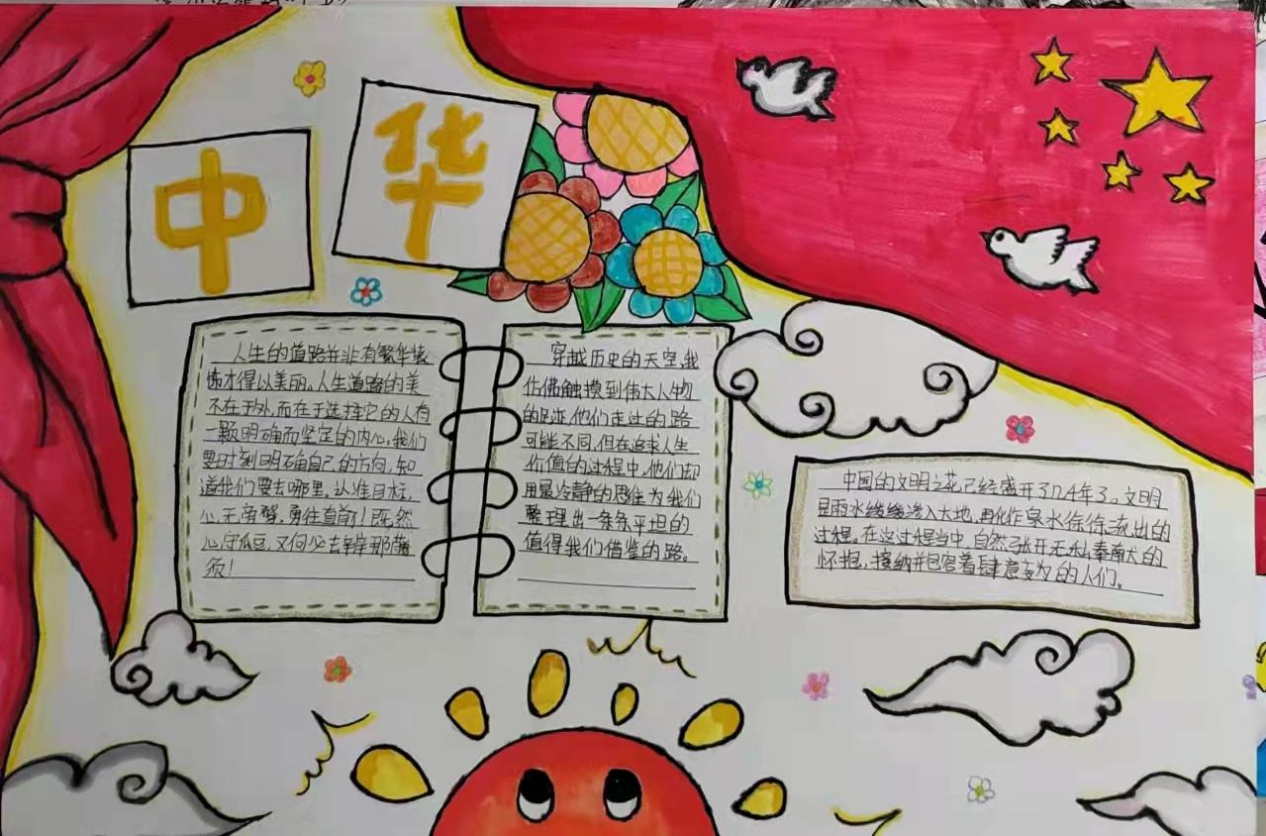 中华
人生的道路并非有繁华装
饰才得以美丽。人生道路的美
不在于外,而在于选择它的人有
一颗明确而坚定的内心,我们
要时刻明确自己的方向,知
道我们要去哪里,认准目标,
心无旁骛,勇往直前!既然
心守瓜豆,又何必去
须!
穿越历史的天空,我
仿佛触摸到伟大人物
的足迹,他们走过的路
可能不同,但在追求人生
价值的过程中,他们却
用最冷静的思维为我们
整理出一条条平坦的
值得我们借鉴的路。
中国的文明之花已经盛开了几千年了。文明
是雨水缓缓渗入大地,再化作泉水徐徐流出的
过程。在这过程当中,自然张开无私奉献的
怀抱,接纳并包容着肆意妄为的人们。